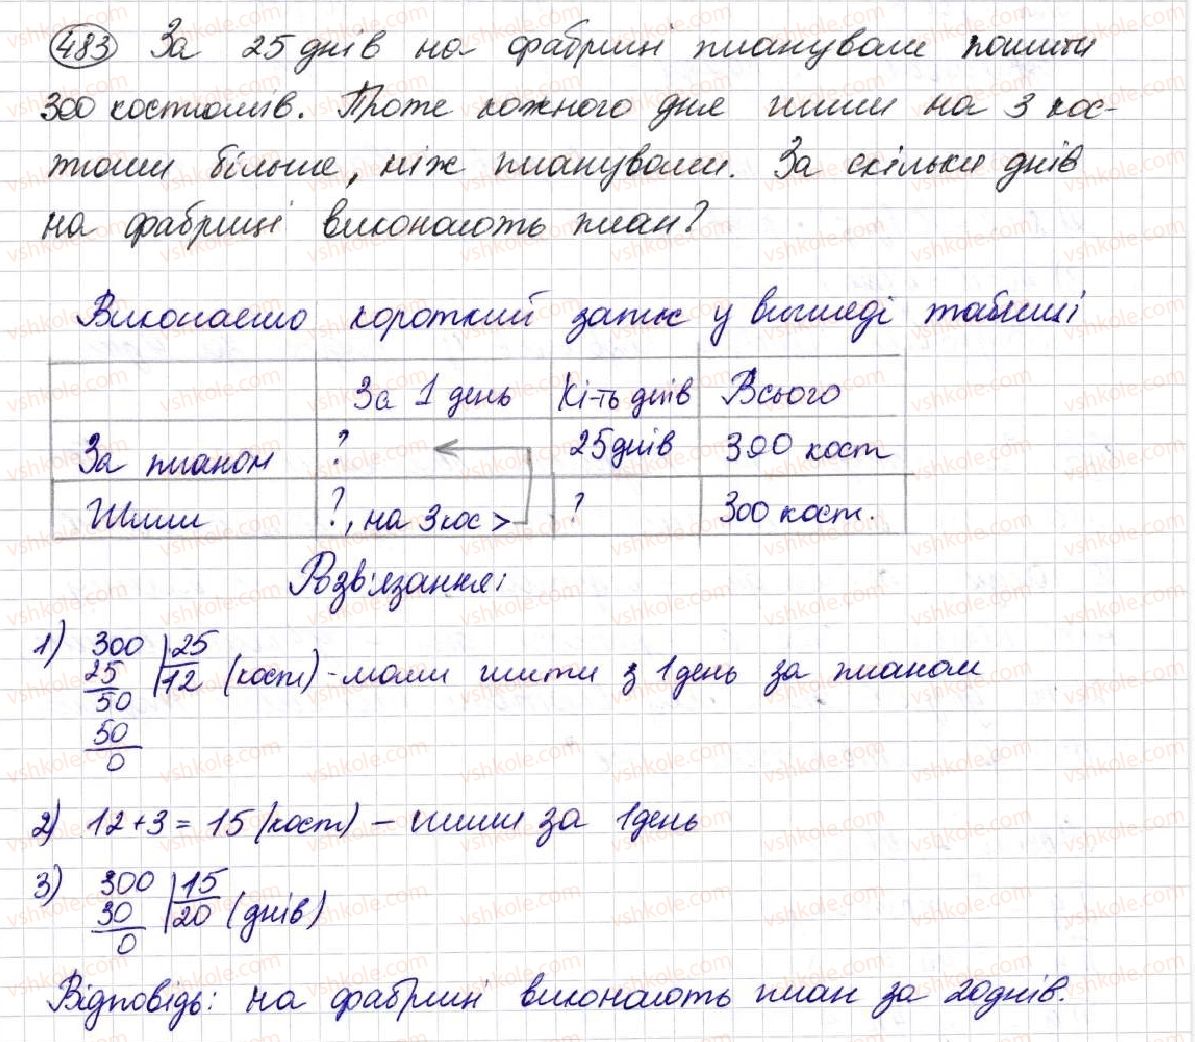 483 За 25 днів на фабриці планували пошити
300 костюмів. Проте кожного дня шили на 3 кос-
тюми більше, ніж планували. За скільки днів
на фабриці виконають план?
Виконаємо короткий запис у вигляді таблиці
За 1 день Кі-ть днів Всього
За планом ? 25 днів 300 кост
Шили ?, на 3 кос > ? 300 кост.
Розв'язання:
1) 300 25
25 12 (кост) - мали шити з 1 день за планом
50
50
0
2) 12 + 3 = 15 (кост) – шили за 1 день
3) 300 15
30 20 (днів)
0
Відповідь: на фабриці виконають план за 20 днів.
vshkole.com